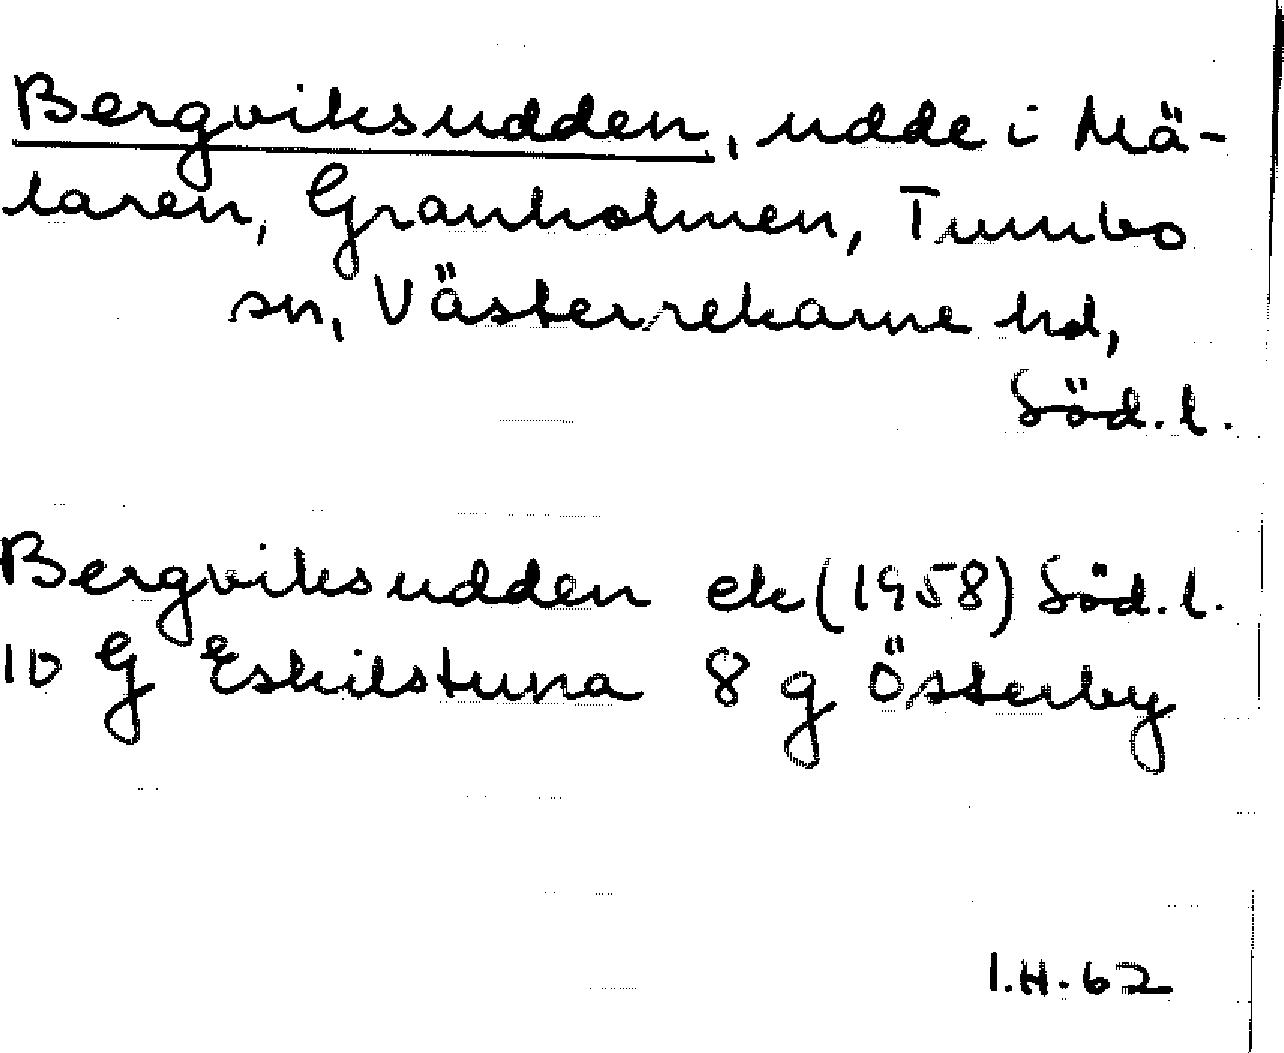 Bergviksudden, udde i Mä-
laren, Granholmen, Tumbo
sn, Västerrekarne hd,
Söd. l.
Bergviksudden ek (1958) Söd. l.
10 G Eskilstuna 8 g Österby
I.H. 62